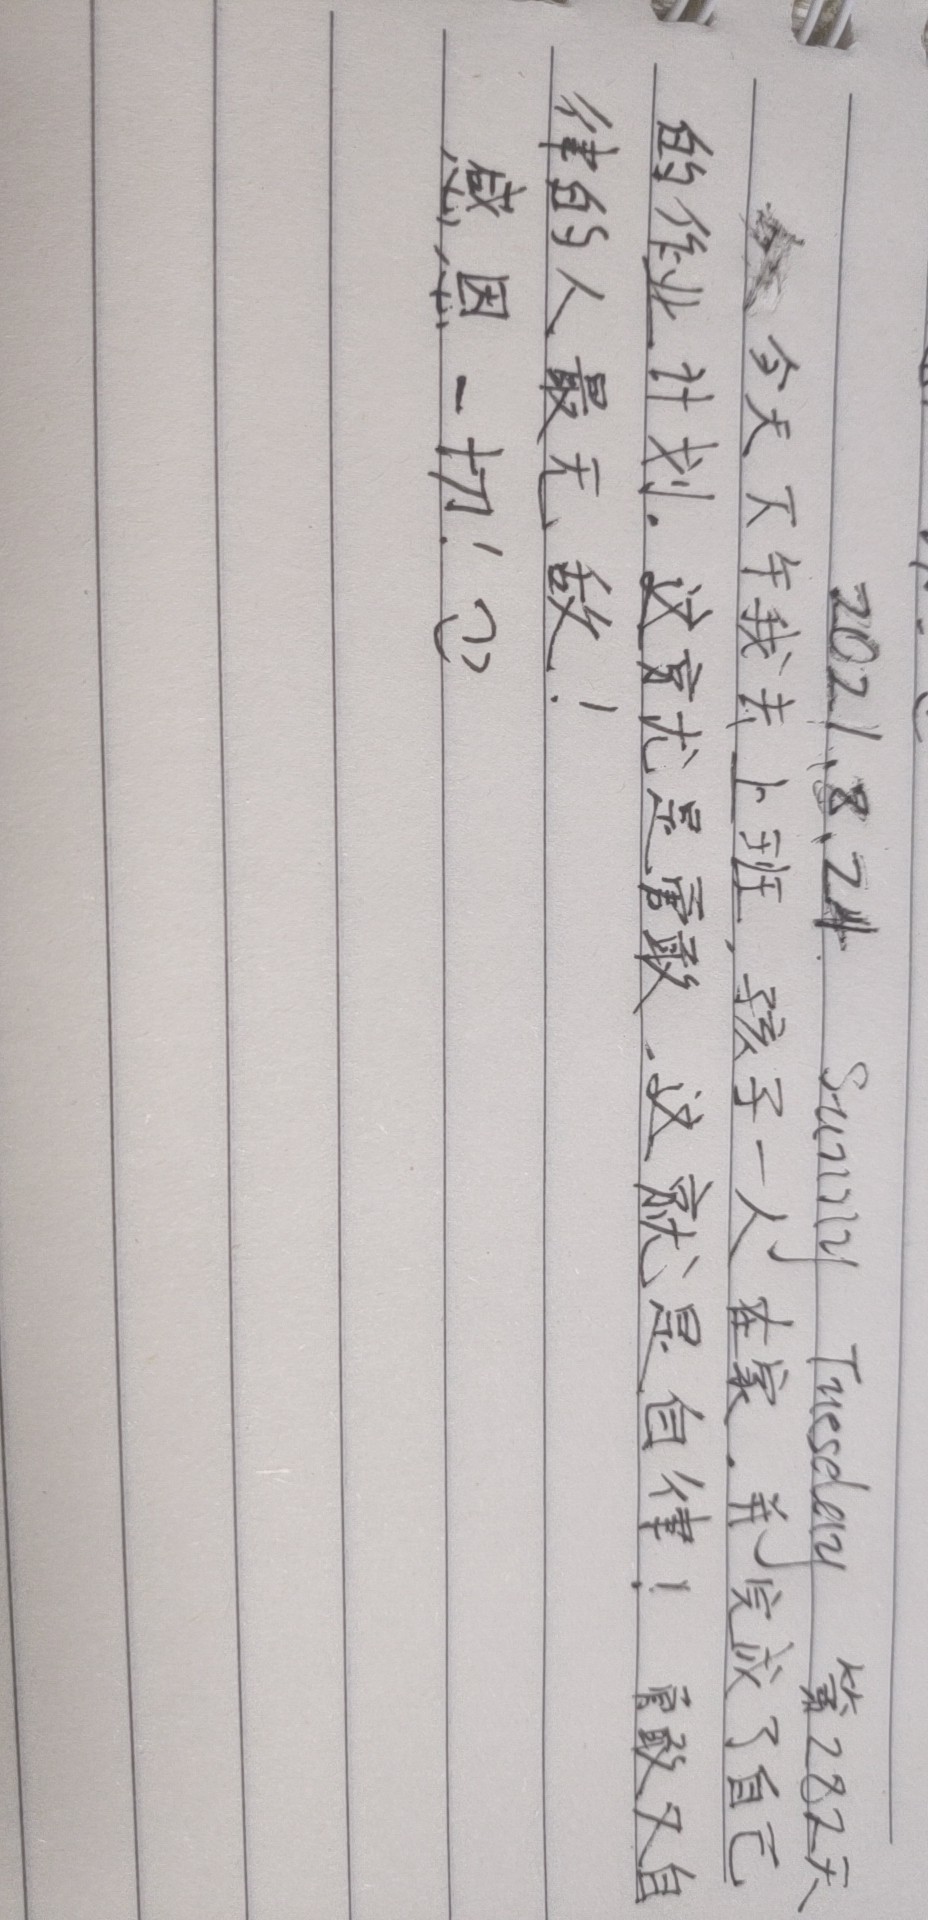 2021.8.24 Sunny Tuesday 第282天
今天下午我去上班,孩子一人在家.并完成了自己
的作业计划.这就是勇敢.这就是自律!勇敢又自
律的人最无敌!
感恩一切!